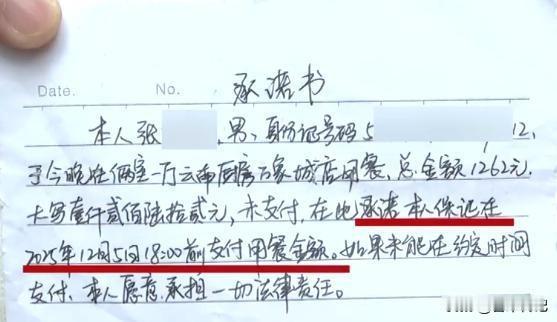 Date. No. 承诺书
本人张 男、身份证号码5 12,
于今晚在俩室一厅云南厨房万象城店用餐、总金额1262元.
大写壹仟贰佰陆拾贰元,未支付,在此承诺本人保证在
2025年12月5日18:00前支付用餐金额。如果未能在约定时间
支付、本人愿意承担一切法律责任。